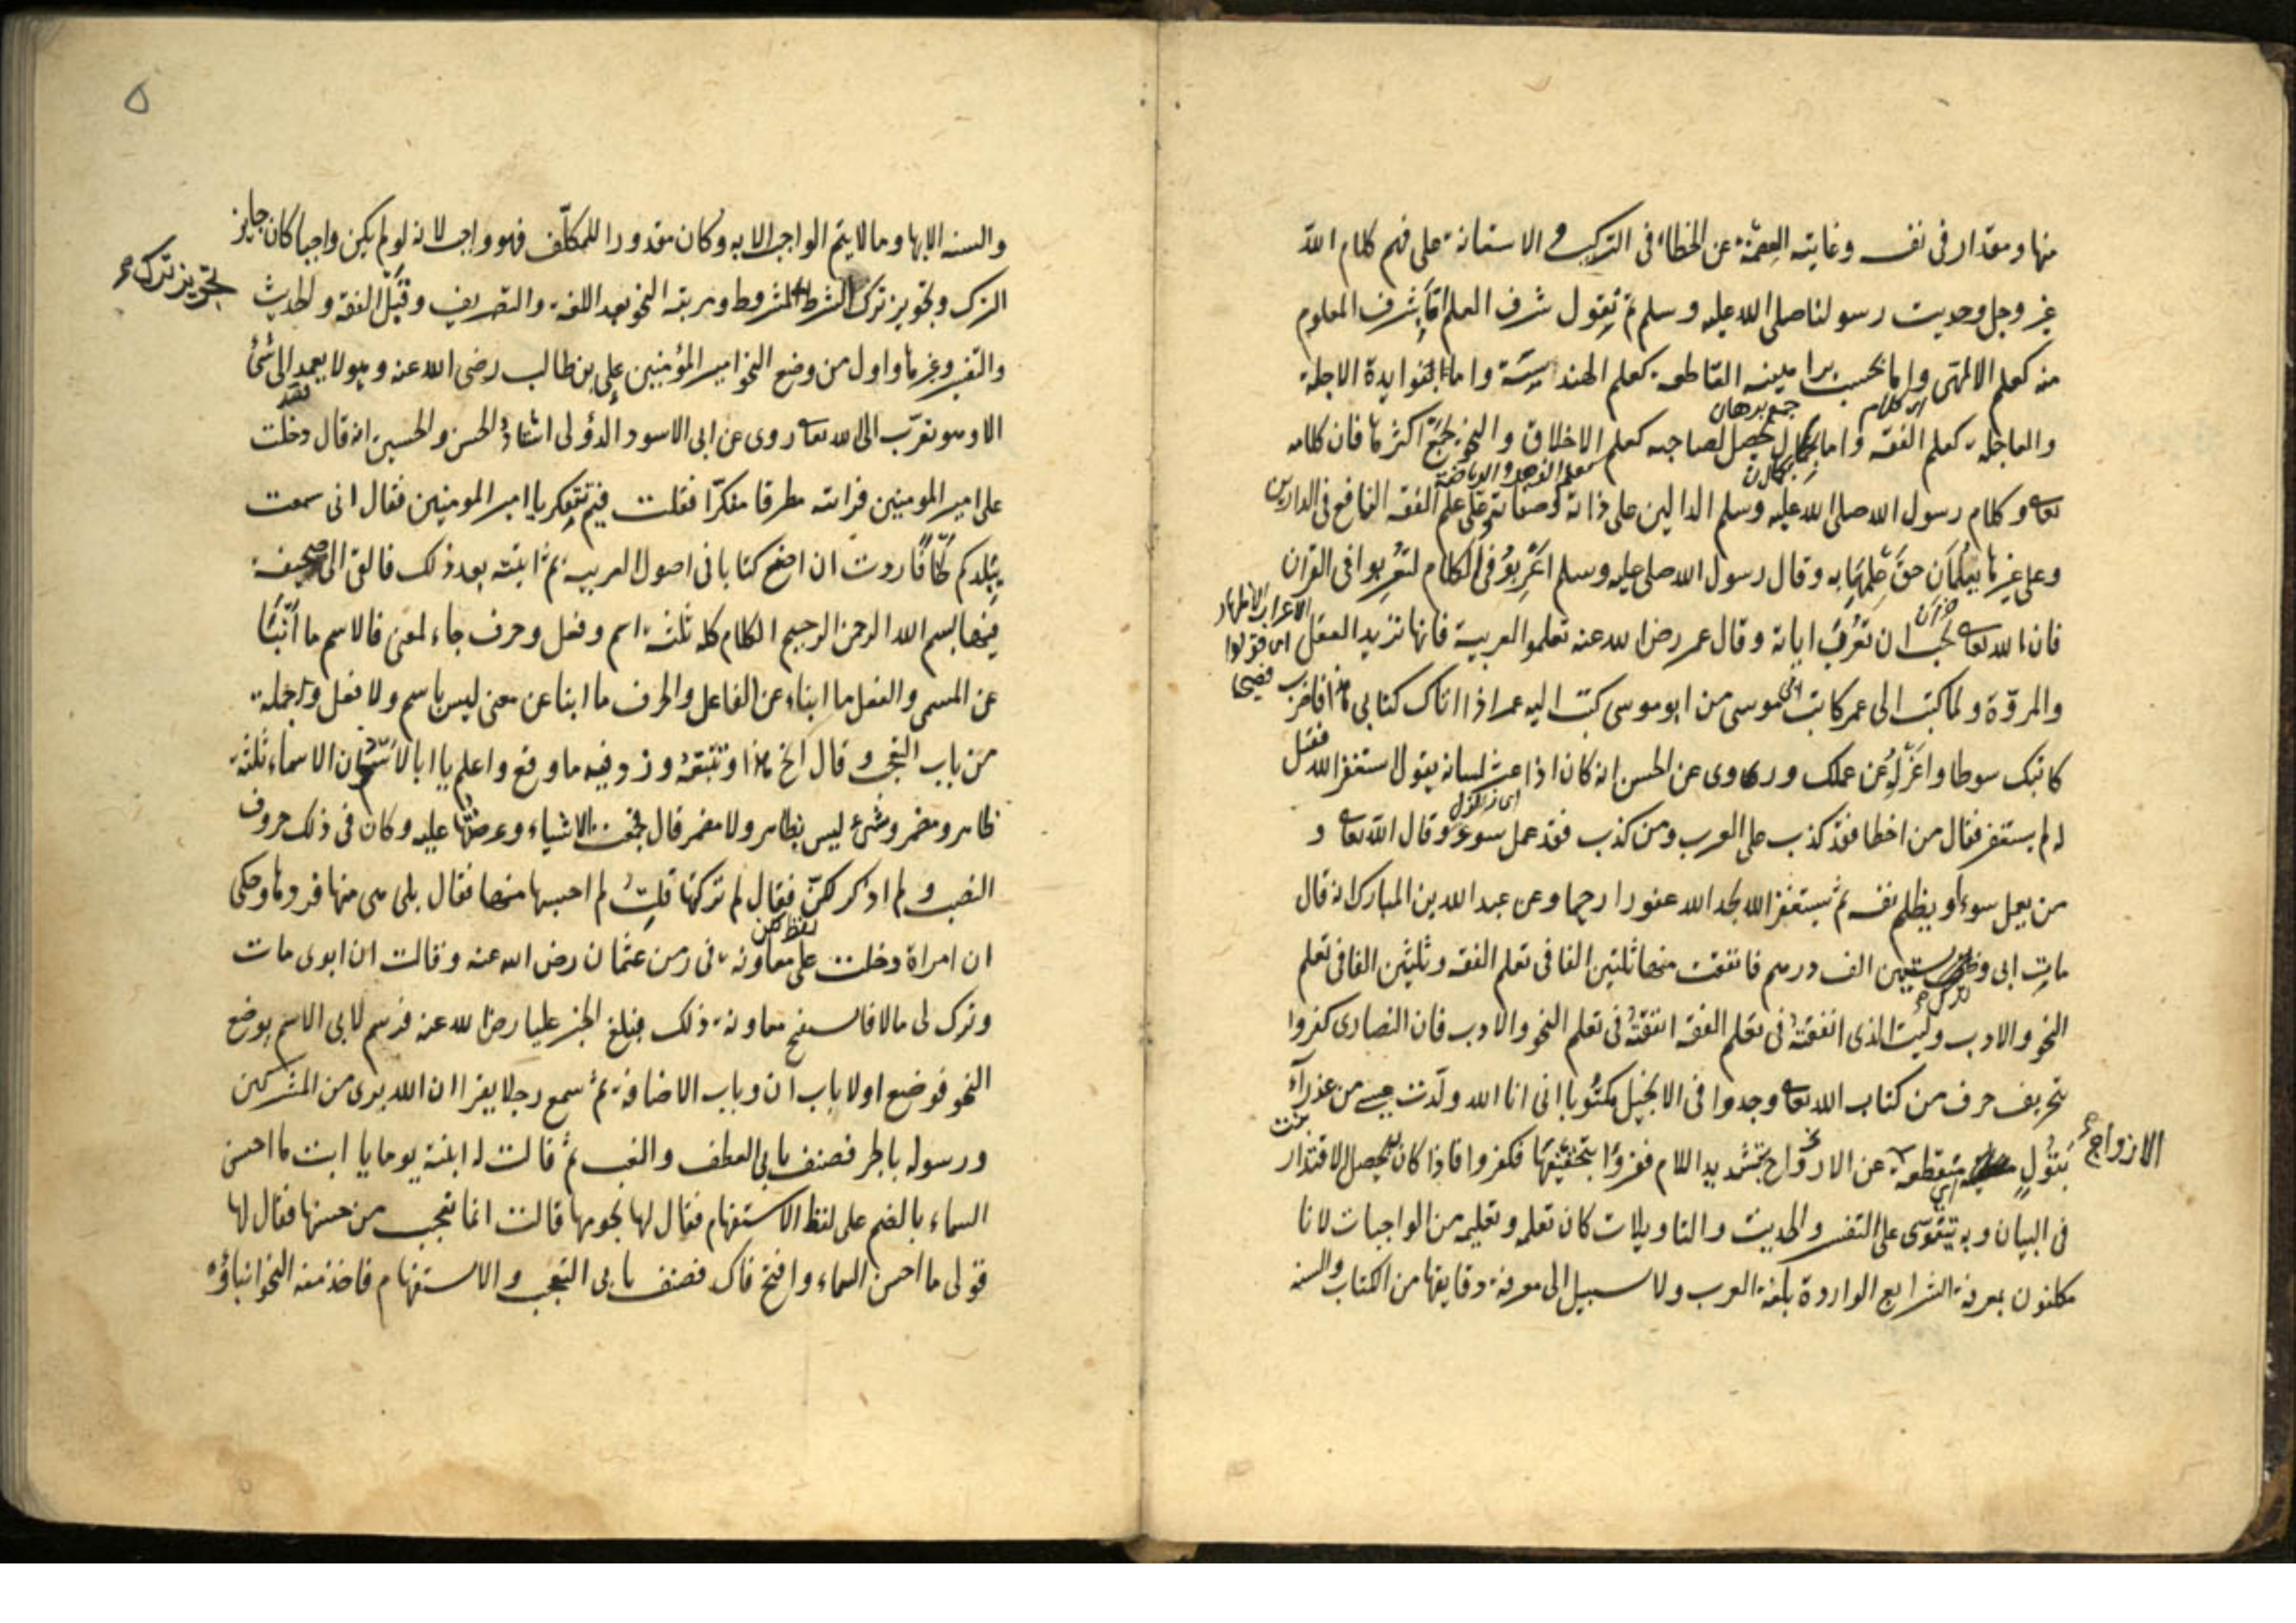 منها ومقدار فى نفسه وغايته العصمة عن الخطاء فى التركيب والاستعانة على فهم كلام الله
عز وجل وحديث رسولنا صلى الله عليه وسلم ثم نقول شرف العلم اما بشرف المعلوم
منه كعلم الالهى واما بحسب براهينه القاطعة كعلم الهندسة واما لفوايدة الاجلة
اى كلام جمع برهان
والعاجلة كعلم الفقه واما بكمال يحصل لصاحبه كعلم الاخلاق والنحو يجمع اكثرها فان كلامه
تعا وكلام رسول الله صلى الله عليه وسلم الدالين على ذاته وصفاته وعلى علم الفقه النافع فى الدارين
وعلى غيرها يتكلمان حق علمها به وقال رسول الله صلى الله عليه وسلم اعربوا فى الكلام لتعربوا فى القران
فان الله تعا يحب ان تعرب اياته وقال عمر رضى الله عنه تعلموا العربية فانها تزيد العقل
والمروّة ولما كتب الى عمر كاتب ابى موسى من ابو موسى كتب اليه عمر اذا اتاك كتابى هذا فاضرب
كاتبك سوطا واعزله عن عملك وروى عن الحسن انه كان اذا عثر لسانه يقول استغفر الله فقيل
له لم يستغفر فقال من اخطا فقد كذب على العرب ومن كذب فقد عمل سوء وقال الله تعا و
من يعمل سوءا او يظلم نفسه ثم يستغفر الله يجد الله غفورا رحيما وعن عبد الله بن المبارك انه قال
مات ابى وخلف ستين الف درهم فانفقت منها ثلثين الفا فى تعلم الفقه وثلثين الفا فى تعلم
النحو والادب وليت الذى انفقته فى تعلم الفقه انفقته فى تعلم النحو والادب فان النصارى كفروا
بتحريف حرف من كتاب الله تعا وجدوا فى الانجيل مكتوبا انى انا الله ولّدت عيسى من عذرآء
بتول منقطعة عن الازواج بتشديد اللام فقرؤا بتخفيفها فكفروا فاذا كان يحصل الاقتدار
الازواج
فى البيان وبه يتقوى على التفسير والحديث والتاويلات كان تعلمه وتعليمه من الواجبات لانا
مكلفون بمعرفة الشرايع الواردة بلغة العرب ولا سبيل الى معرفة دقايقها من الكتاب والسنه
٥
والسنه الا بها وما لا يتم الواجب الا به وكان مقدورا للمكلّف فهو واجب لانه لو لم يكن واجبا كان جايز
الترك وتجويز ترك الشرط المشروط ومرتبته النحو بعد اللغة والتصريف وقبل الفقه والحديث
تجويز ترك
والتفسير وغيرها واول من وضع النحو امير المؤمنين على بن طالب رضى الله عنه وهو لا يعمد الى شئ
الا وهو تقرّب الى الله تعا روى عن ابى الاسود الدؤلى استاذ الحسن والحسين انه قال دخلت
على امير المومنين فرايته مطرقا مفكرّا فقلت فيم تتفكر يا امير المومنين فقال انى سمعت
ببلدكم لحنا فاردت ان اضع كتابا فى اصول العربيه ثم اتيته بعد ذلك فالقى الى صحيفة
فيها بسم الله الرحمن الرحيم الكلام كله ثلثة اسم وفعل وحرف جاء لمعنى فالاسم ما انبأ
عن المسمى والفعل ما ابناء عن الفاعل والحرف ما ابنا عن معنى ليس باسم ولا فعل وجملة
من باب التعجب وقال انح هذا وتتبعه وزد فيه ما وقع واعلم يا ابا الاسود ان الاسماء ثلثة
ظاهر ومضمر وشئ ليس بظاهر ولا مضمر قال فجمعت الاشياء وعرضتها عليه وكان فى ذلك حروف
النصب ولم اذكر لكنّ فقال لم تركتها قلت لم احسبها منها فقال بلى هى منها فزدها وحكى
لفظ لكن
ان امراة دخلت على معاوية فى زمن عثمان رضى الله عنه وقالت ان ابوى مات
وترك لى مالا فاستقبح معاوية ذلك فبلغ الخبر عليا رضى الله عنه فرسم لابى الاسم بوضع
النحو فوضع اولا باب ان وباب الاضافة ثم سمع رجلا يقرا ان الله برى من المشركين
ورسوله بالجر فصنف بابى العطف والنعت ثم قالت له ابنته يوما يا ابت ما احسن
السماء بالضم على لفظ الاستفهام فقال لها نجومها قالت انما تعجب من حسنها فقال لها
قولى ما احسن السماء وافتح فاك فصنف بابى التعجب والاستفهام فاخذ منه النحو ابناؤه